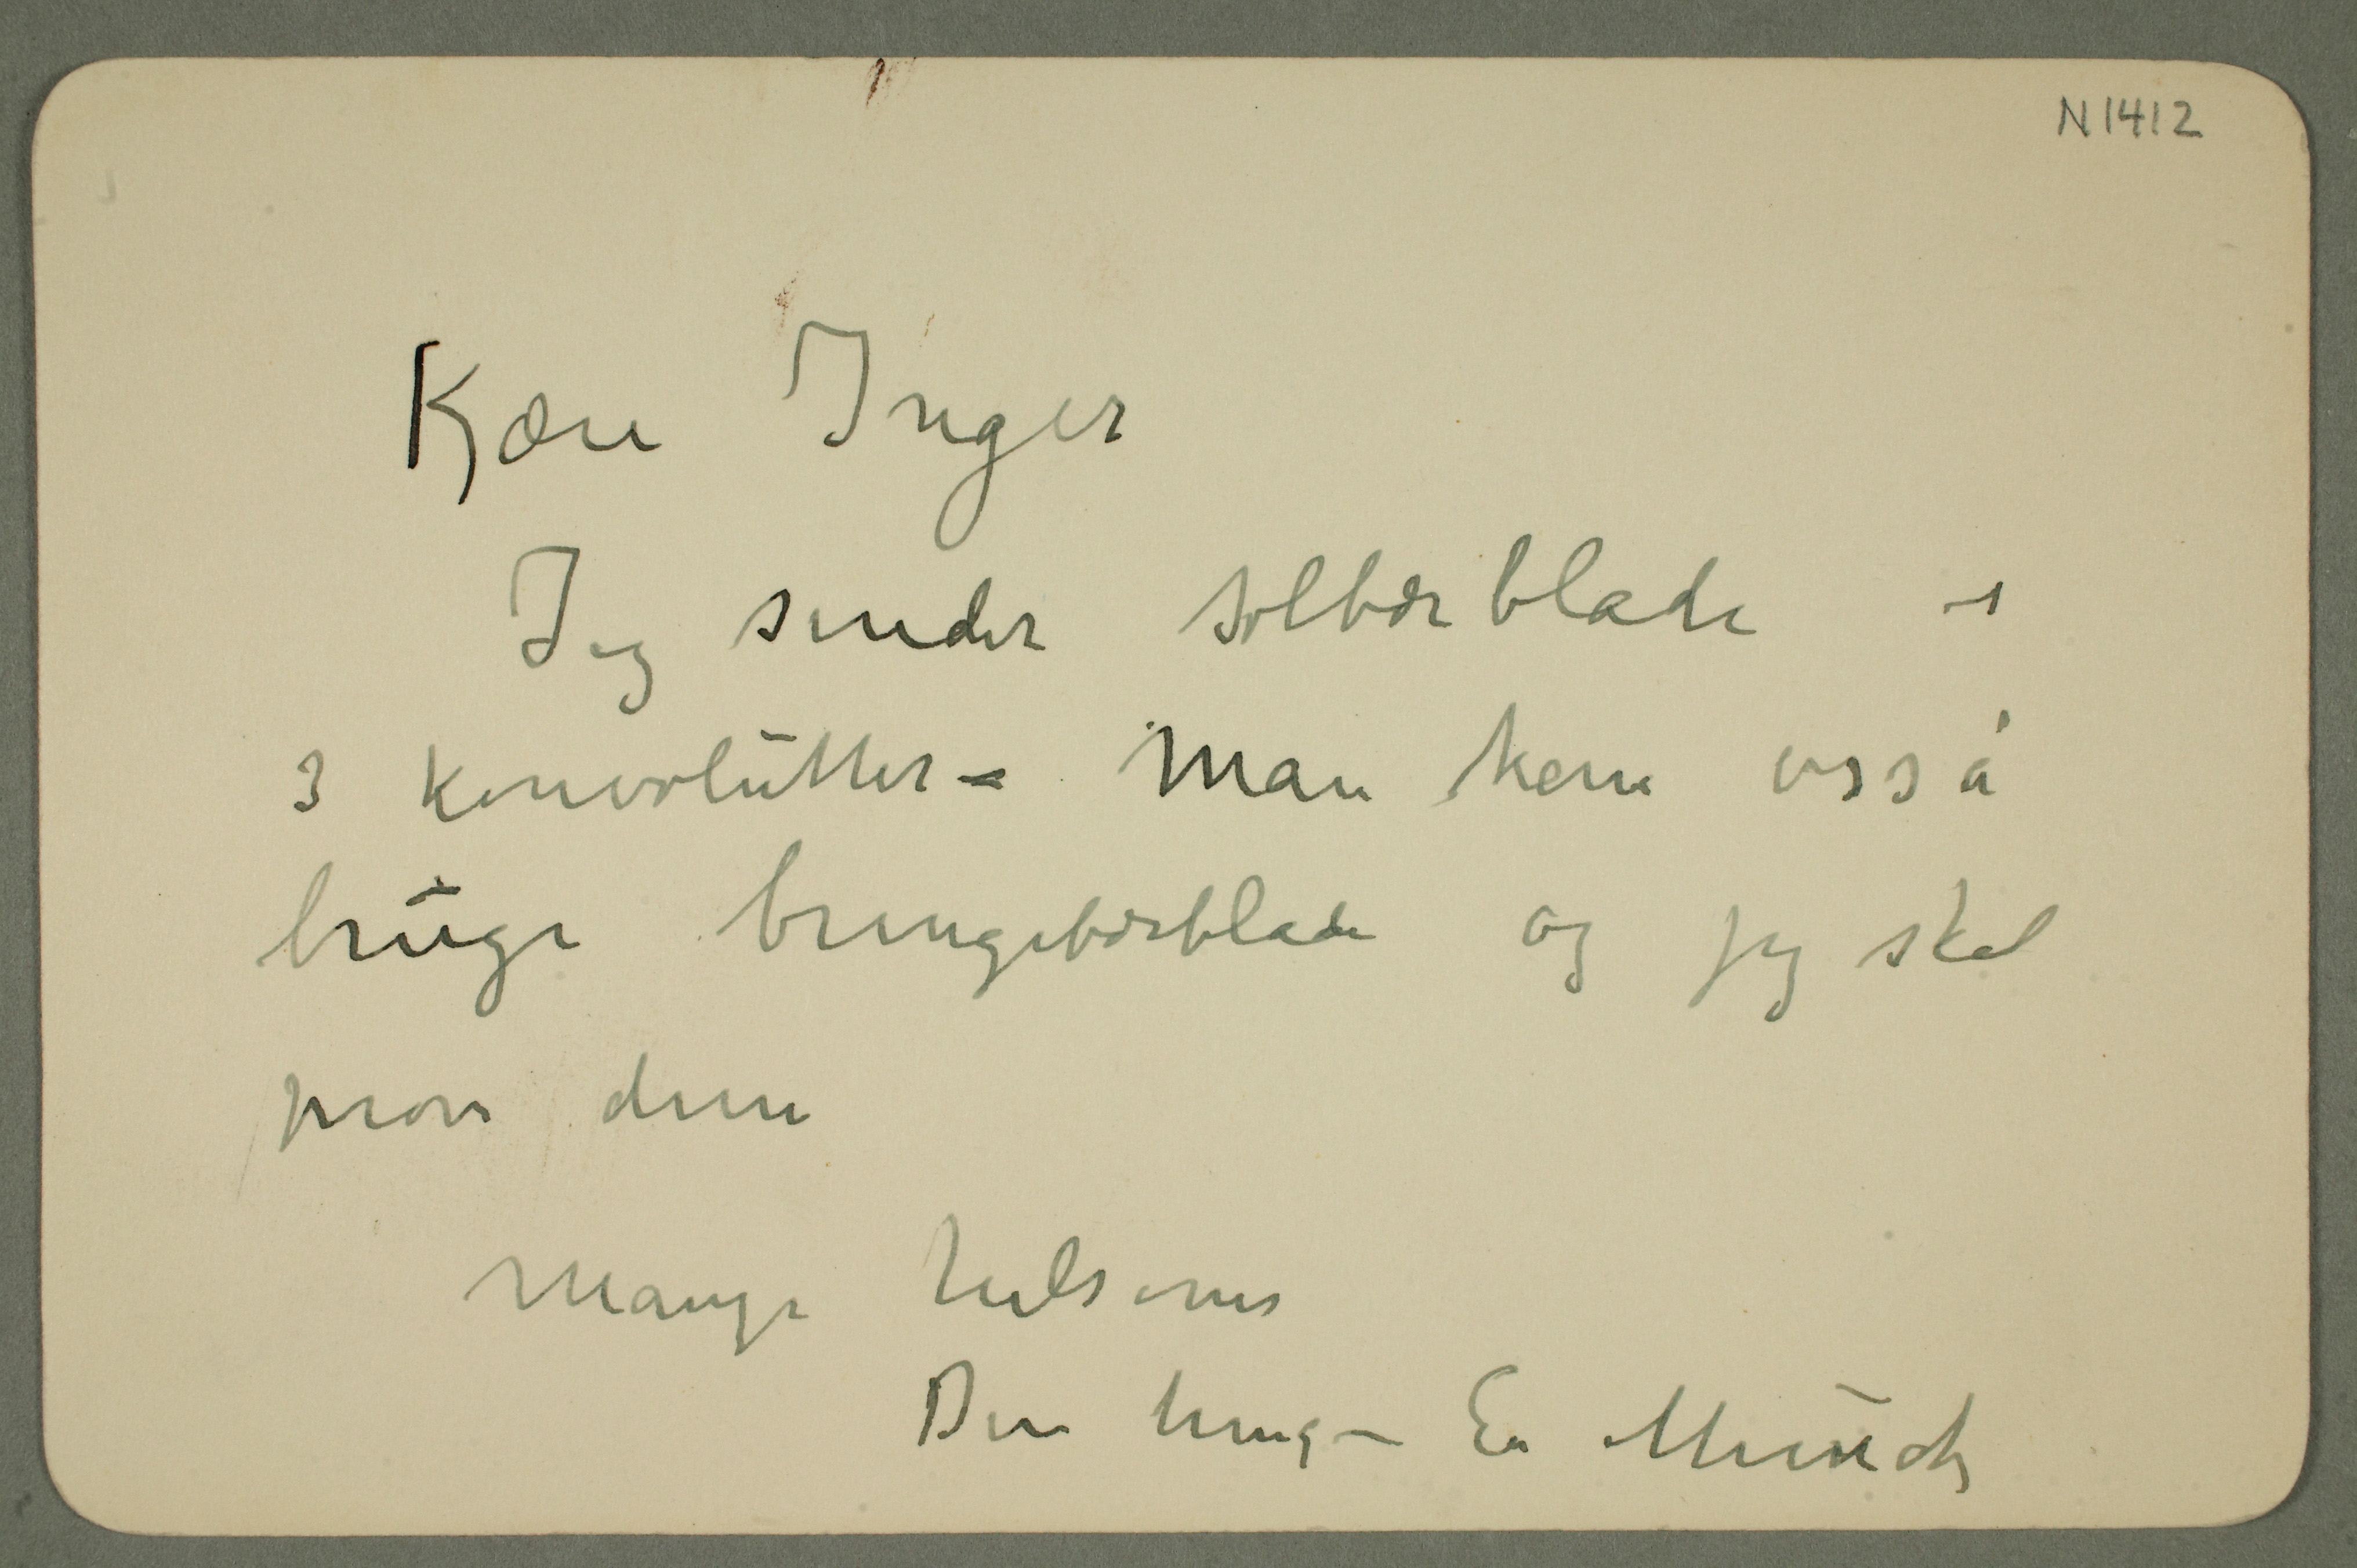 N 1412
Kjære Inger
Jeg sender solbærblade i
3 konvolutter – Man kan også
bruge bringebærblade og jeg skal
prøve dem
Mange hilsener
Din heng– E Munch